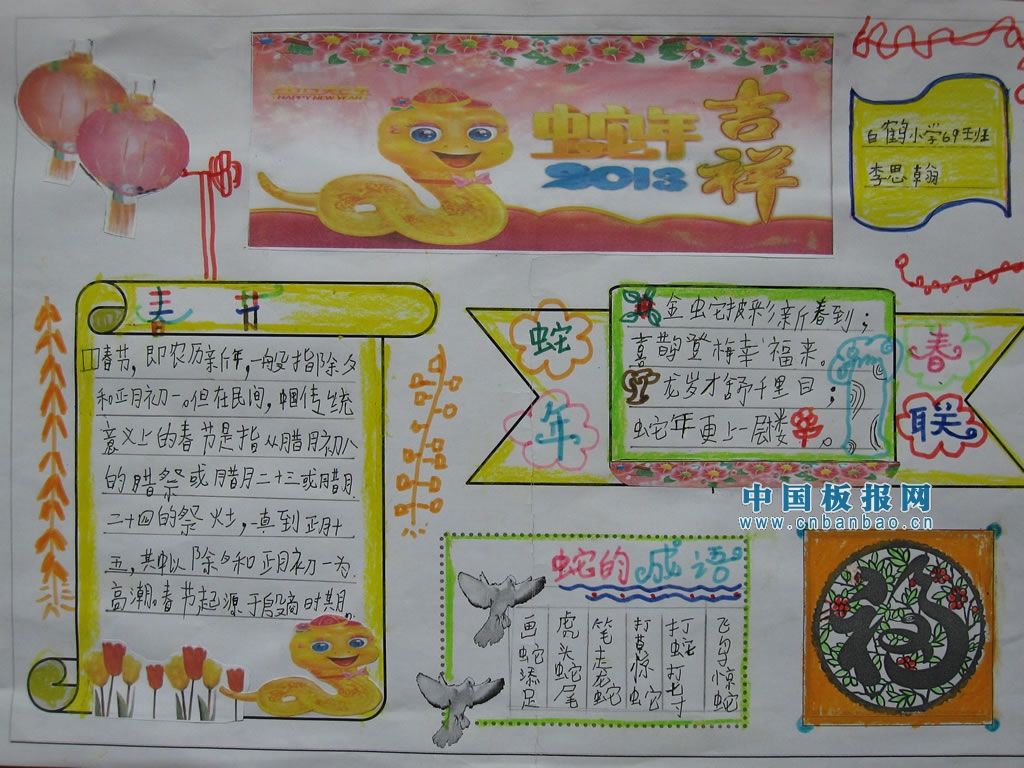 HAPPY NEW YEAR
蛇年
2013
吉祥
白鹤小学69班
李思翰
春节
春节,即农历新年,一般指除夕
和正月初一。但在民间,传统
意义上的春节是指从腊月初八
的腊祭或腊月二十三或腊月
二十四的祭灶,真到正月十
五,其中以除夕和正月初一为
高潮。春节起源于殷商时期
蛇年
春联
金蛇披彩新春到;
喜鹊登梅幸福来。
龙岁才舒千里目;
蛇年更上一层楼。
中国板报网
www.cnbanbao.cn
蛇的成语
画蛇添足
虎头蛇尾
笔走龙蛇
打草惊蛇
打蛇打七寸
飞鸟惊蛇
福